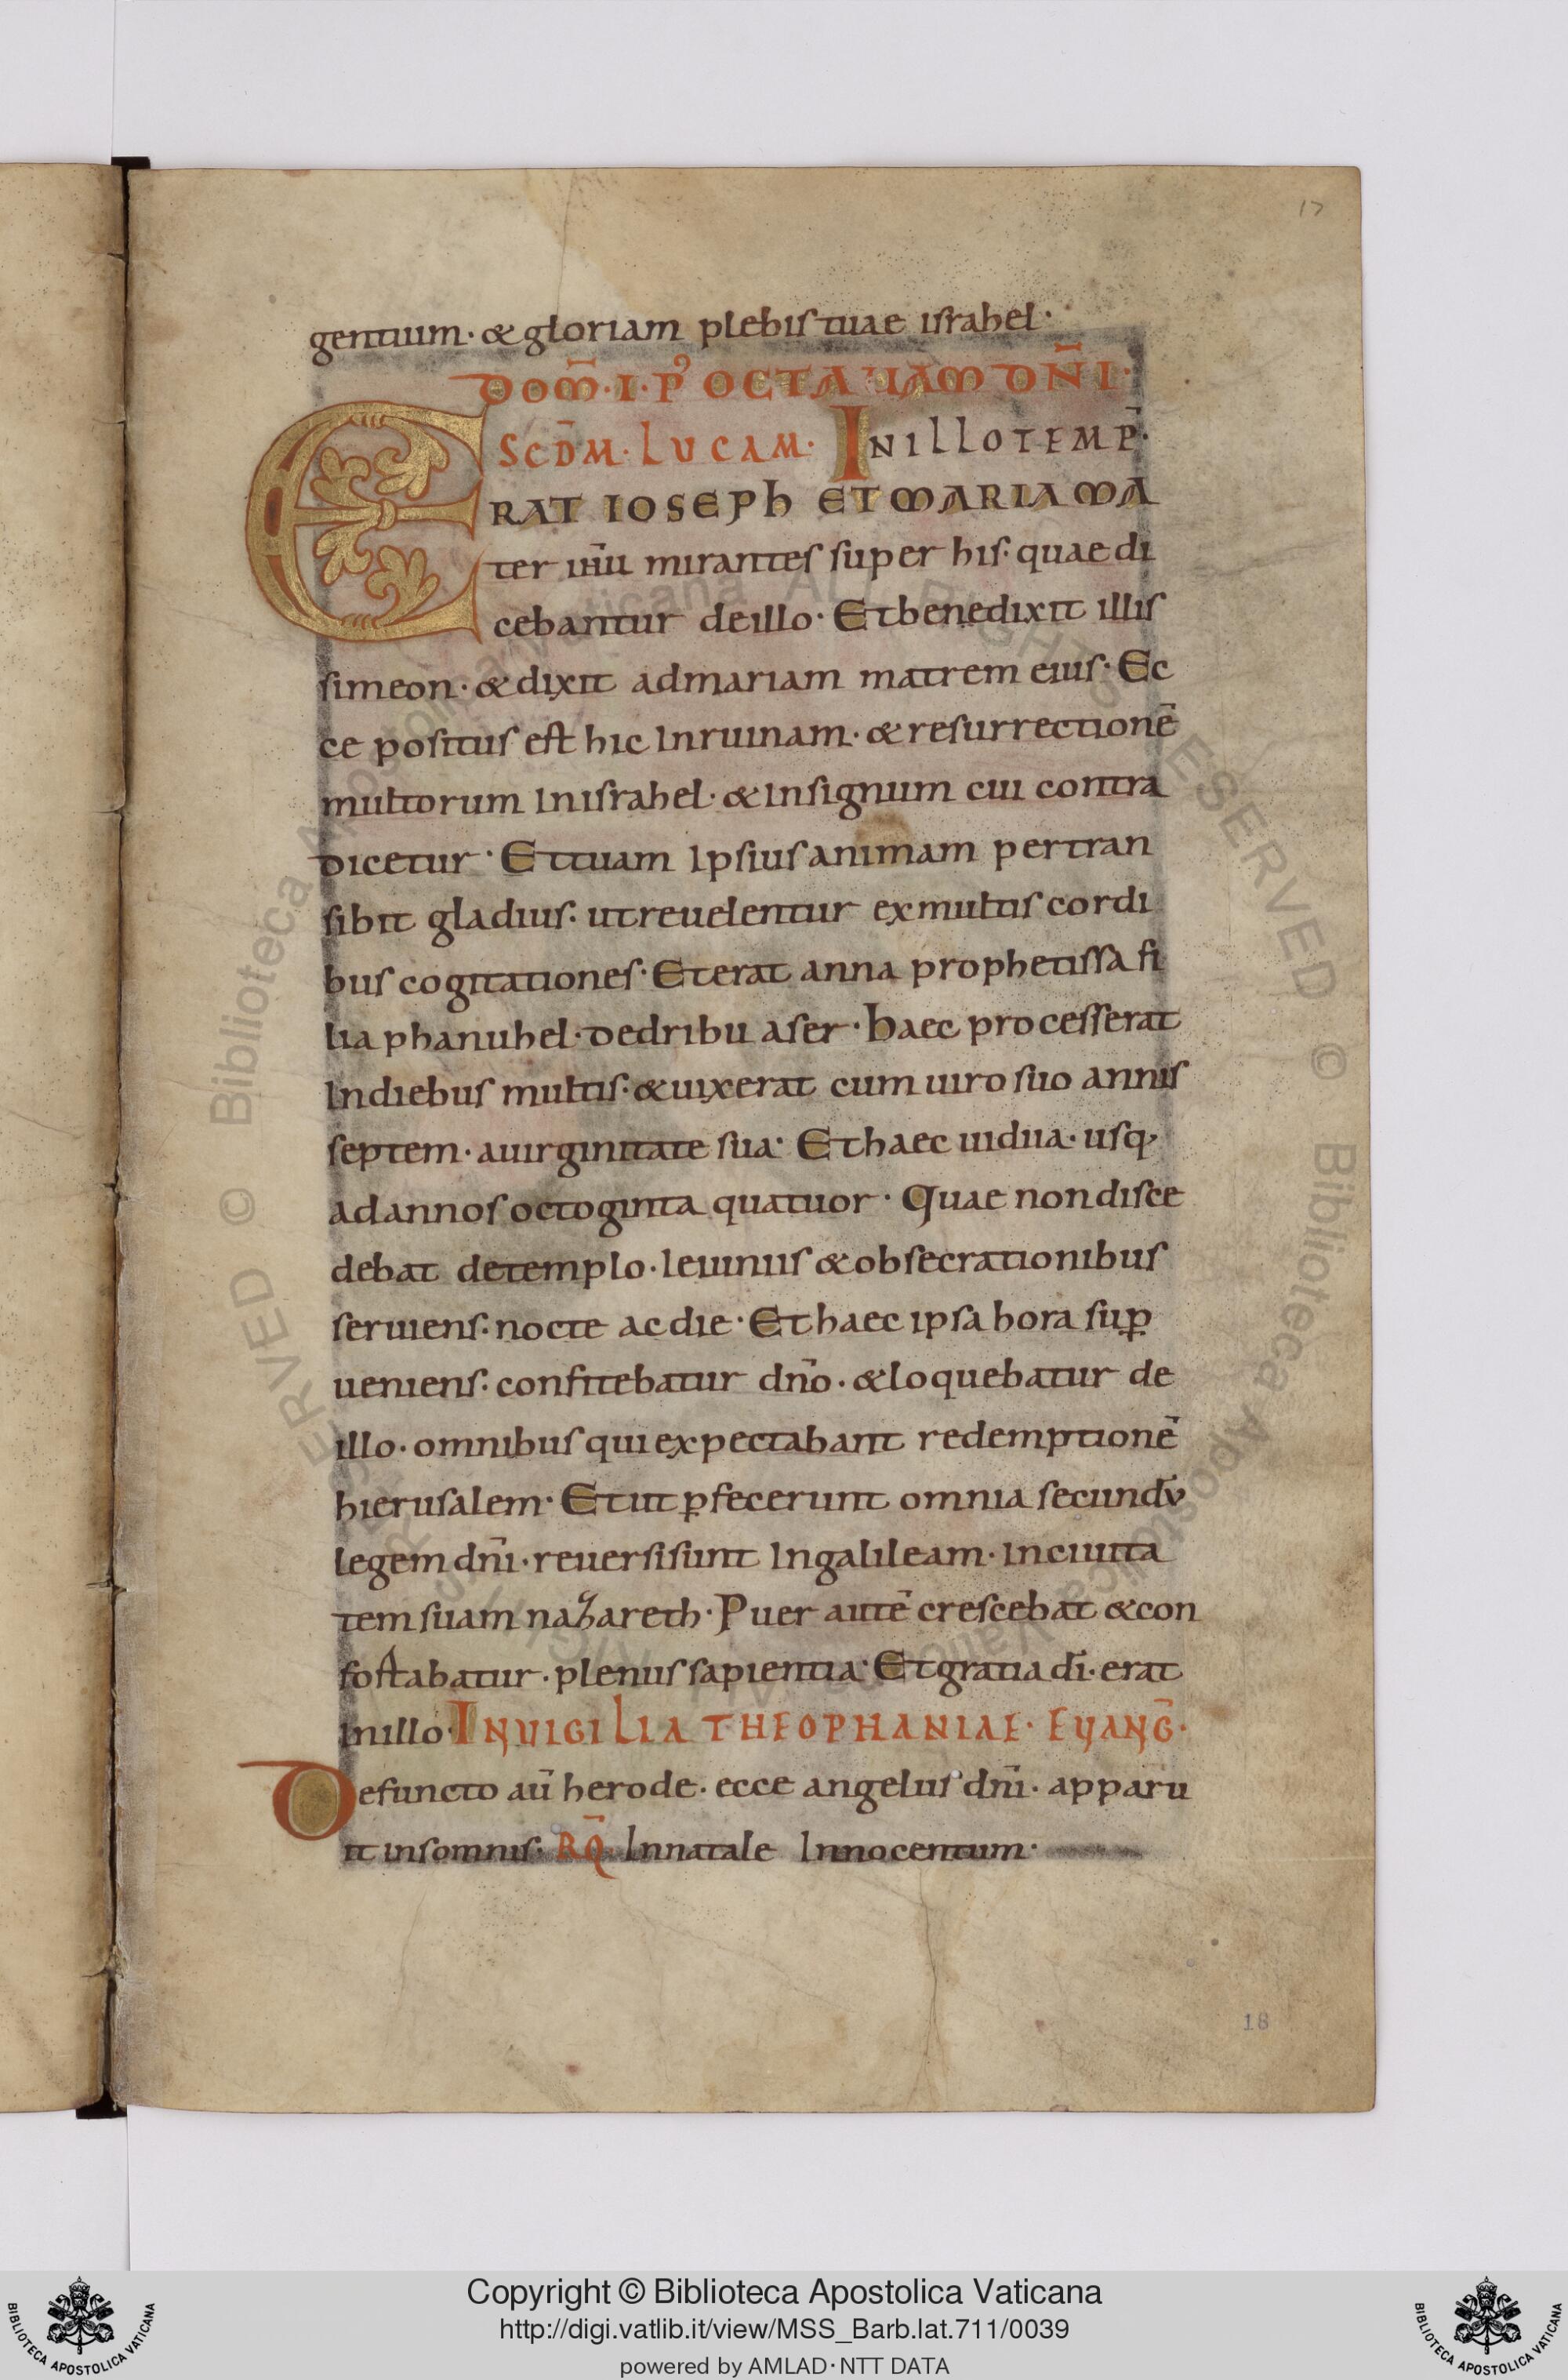 17
gentium· & gloriam plebis tuae israhel·
DOM̅·I·P᾿ OCTAUAM DN̅I·
SCD̅M·LUCAM· IN ILLO TEMP̅·
ERAT IOSEPH ET MARIA MA
ter ih̅u mirantes super his· quae di
cebantur de illo· Et benedixit illis
simeon· & dixit ad mariam matrem eius· Ec
ce positus est hic In ruinam· & resurrectione̅
multorum In israhel· & In signum cui contra
dicetur· Et tuam Ipsius animam pertran
sibit gladius· ut reuelentur ex multis cordi
bus cogitationes· Et erat anna prophetissa fi
lia phanuhel· de dribu aser· Haec processerat
In diebus multis· & uixerat cum uiro suo annis
septem· a uirginitate sua· Et haec uidua· usq·
ad annos octoginta quatuor· Quae non disce
debat de templo· Ieiuniis & obsecrationibus
seruiens· nocte ac die· Et haec ipsa hora suꝑ
ueniens· confitebatur dn̅o· & loquebatur de
illo· omnibus qui expectabant redemptione̅
hierusalem· Et ut ꝑfecerunt omnia secundu̅
legem dn̅i· reuersi sunt In galileam· In ciuita
tem suam nazareth· Puer aute̅ crescebat & con
fortabatur· plenus sapientia· Et gratia di̅· erat
In illo· IN UIGILIA THEOPHANIAE· EUANG̅·
Defuncto au̅ herode· ecce angelus dn̅i· apparu
it in somnis· RQ̅ In natale Innocentum·
18
© Biblioteca Apostolica Vaticana ALL RIGHTS RESERVED © Biblioteca Apostolica Vaticana ALL RIGHTS RESERVED
Copyright © Biblioteca Apostolica Vaticana
http://digi.vatlib.it/view/MSS_Barb.lat.711/0039
powered by AMLAD·NTT DATA
BIBLIOTECA APOSTOLICA VATICANA
BIBLIOTECA APOSTOLICA VATICANA